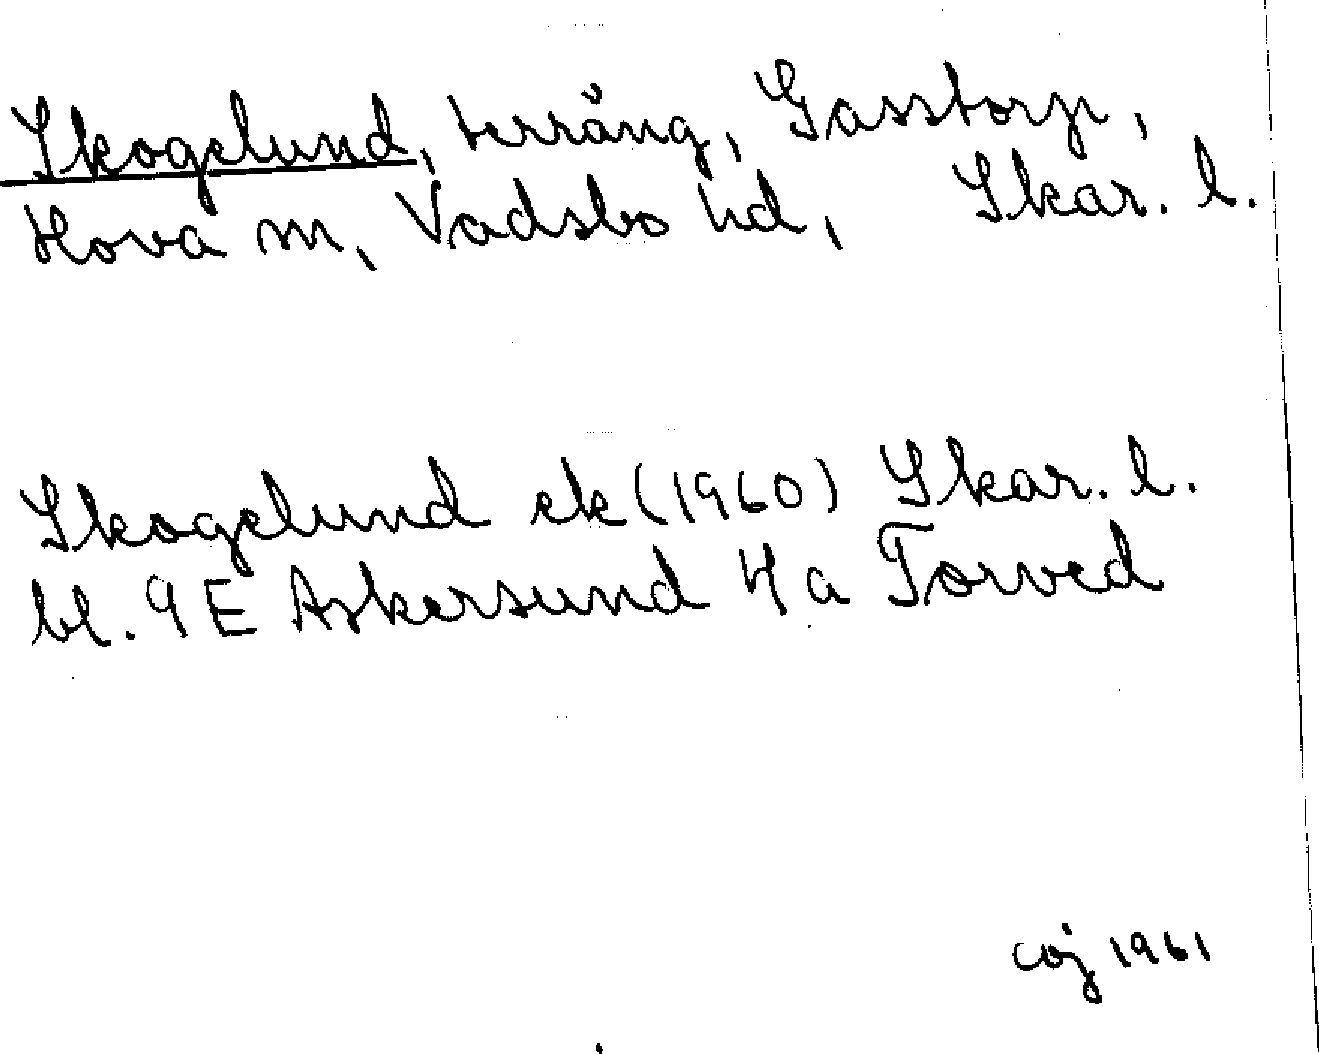 Skogelund, terräng, Gasstorp,
Hova sn, Vadsbo hd, Skar. l.
Skogelund ek (1960) Skar. l.
bl. 9E Askersund 4a Torved
coj 1961